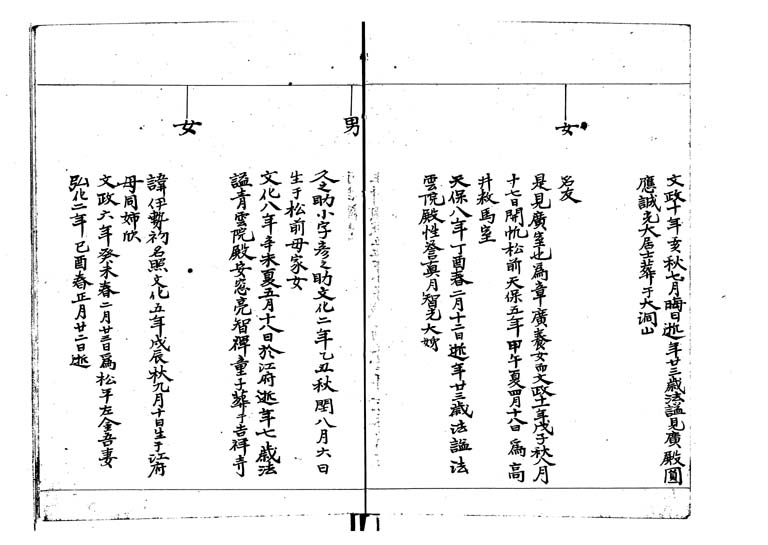 文政十年亥秋七月晦日逝年廿三歳法謚見廣殿圓
應誠光大居士葬于大洞山
女
名友
是見廣室也為章廣養女而文政十一年戊子秋八月
十七日開帆松前天保五年甲午夏四月十八日為高
井救馬室
天保八年丁酉春二月十二日逝年廿三歳法謚法
雲院殿性誉真月智光大姉
男
久之助小字彦之助文化二年乙丑秋閏八月六日
生于松前母家女
文化八年辛未夏五月十八日於江府逝年七歳法
謚青雲院殿安窓亮智禅童子葬于吉祥寺
女
諱伊勢初名照文化五年戊辰秋九月十日生于江府
母同姉欣
文政六年癸未春二月廿三日為松平左金吾妻
弘化二年己酉春正月廿二日逝